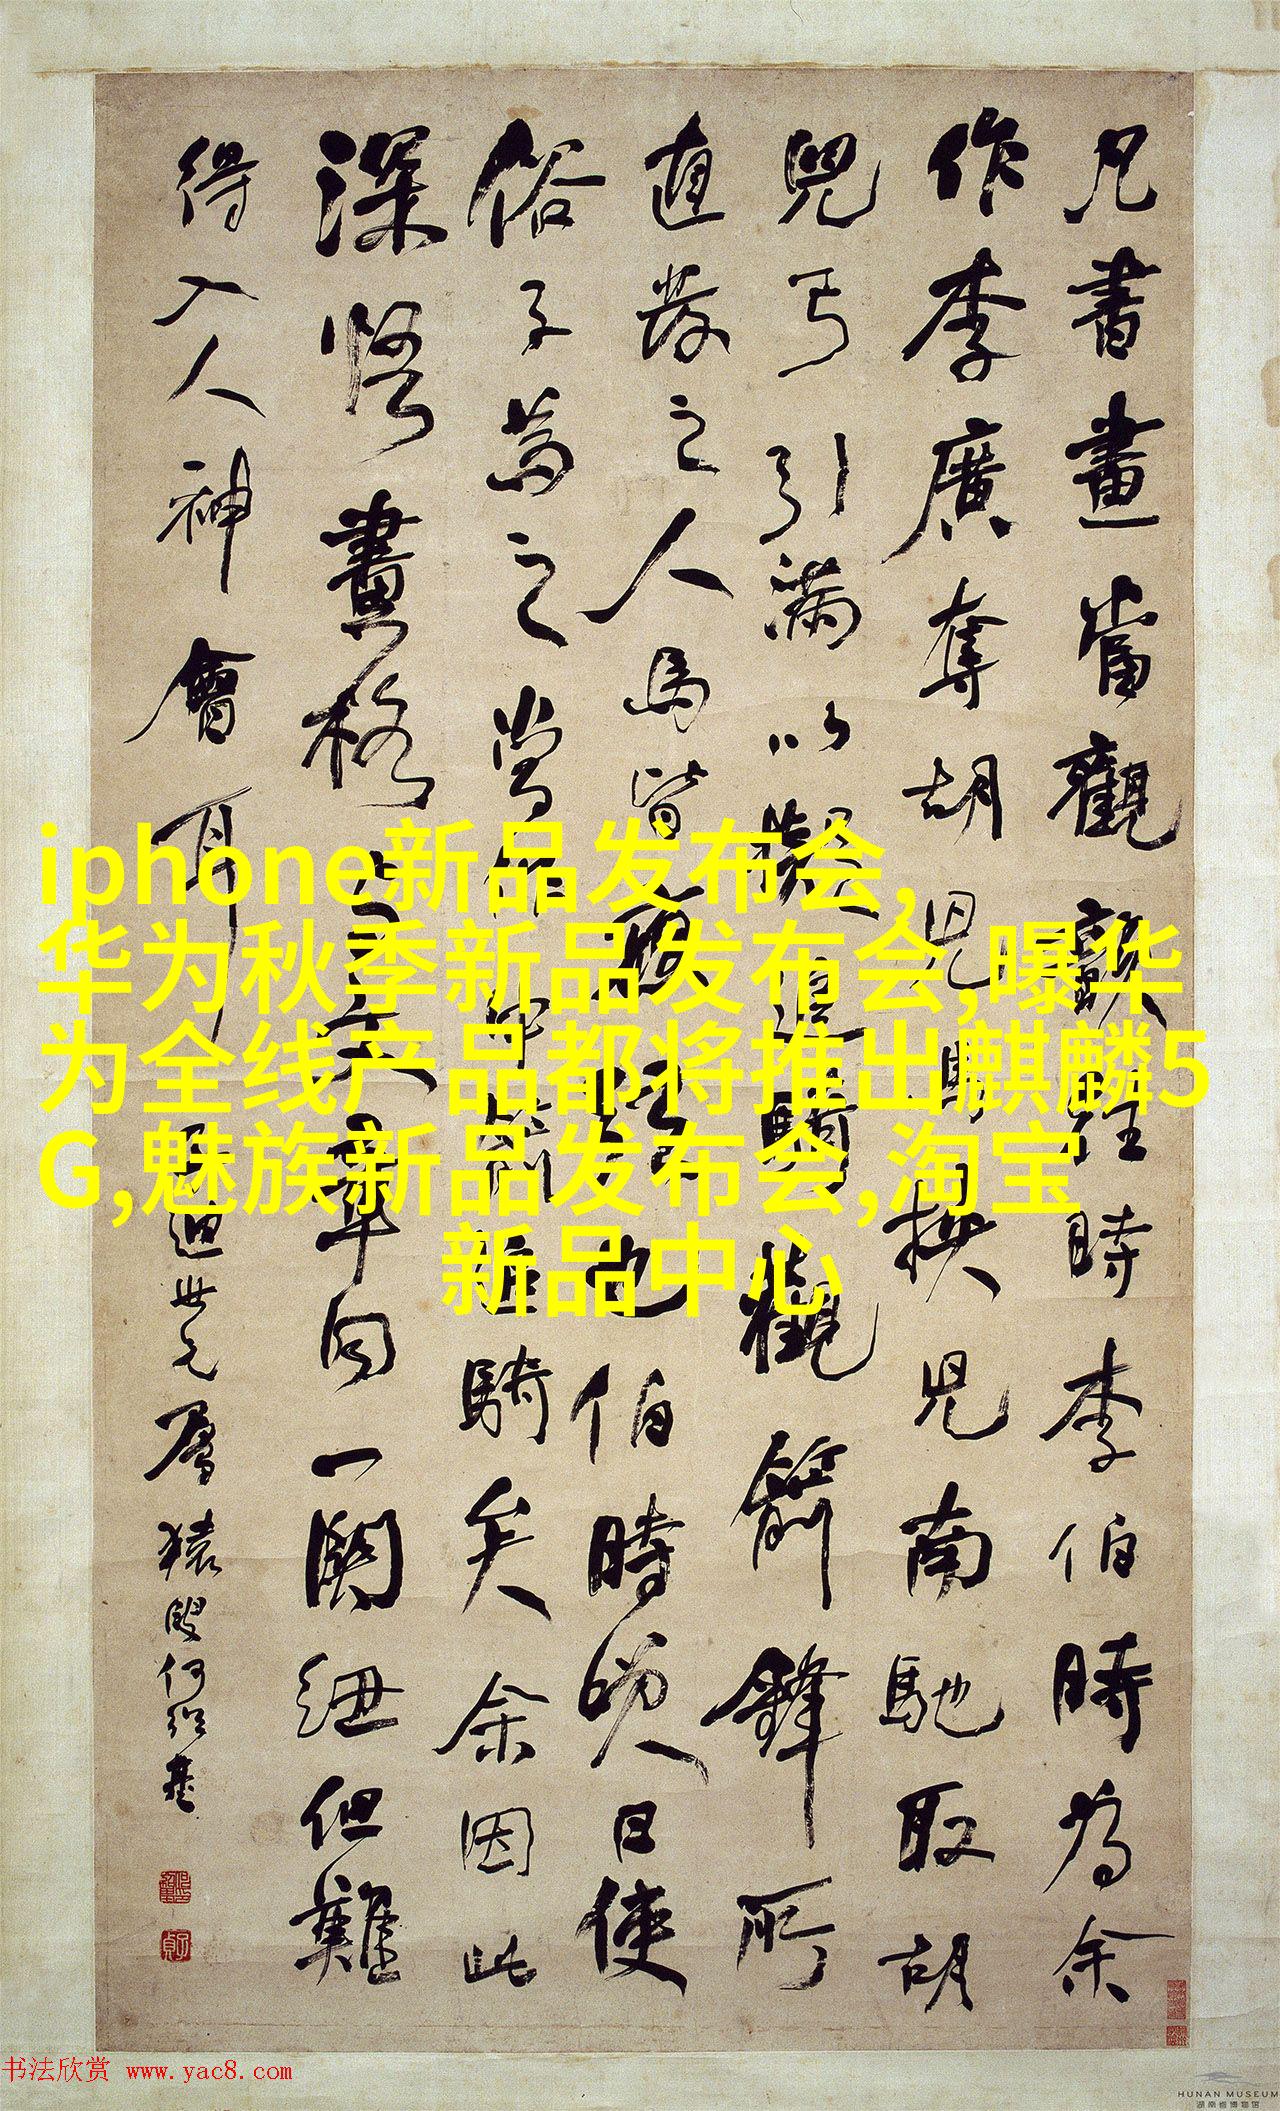 凡書畫當觀韻往時李伯時為余
作李廣奪胡兒馬挾兒南馳取胡
兒弓引滿以擬追騎觀箭鋒所
直發之人馬皆應弦也伯時笑曰使
俗子為之當作中箭追騎矣余因此
深悟畫格此與文章同一關紐但難
得入人神會耳
世兄屬猿叟何紹基
iphone新品发布会,
华为秋季新品发布会,曝华
为全线产品都将推出麒麟5
G,魅族新品发布会,淘宝
新品中心
书法欣赏 www.yac8.com
HUNAN MUSEUM
湖南省博物馆